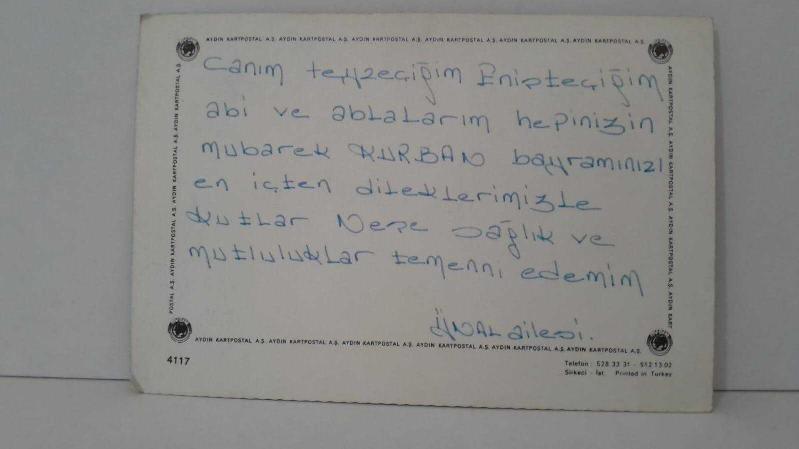 AYDIN KARTPOSTAL A.Ş. AYDIN KARTPOSTAL A.Ş. AYDIN KARTPOSTAL A.Ş. AYDIN KARTPOSTAL A.Ş. AYDIN KARTPOSTAL A.Ş.
Canım teyzeciğim Enişteçiğim
abi ve ablalarım hepinizin
mubarek KURBAN bayramınızı
en içten dileklerimizle
kutlar Neşe sağlık ve
mutluluklar temenni edemim
ÜNAL ailesi.
AYDIN KARTPOSTAL A.Ş. AYDIN KARTPOSTAL A.Ş. AYDIN KARTPOSTAL A.Ş. AYDIN KARTPOSTAL A.Ş. AYDIN KARTPOSTAL A.Ş.
4117
Telefon: 528 33 31 - 512 13 02
Sirkeci - İst. Printed in Turkey